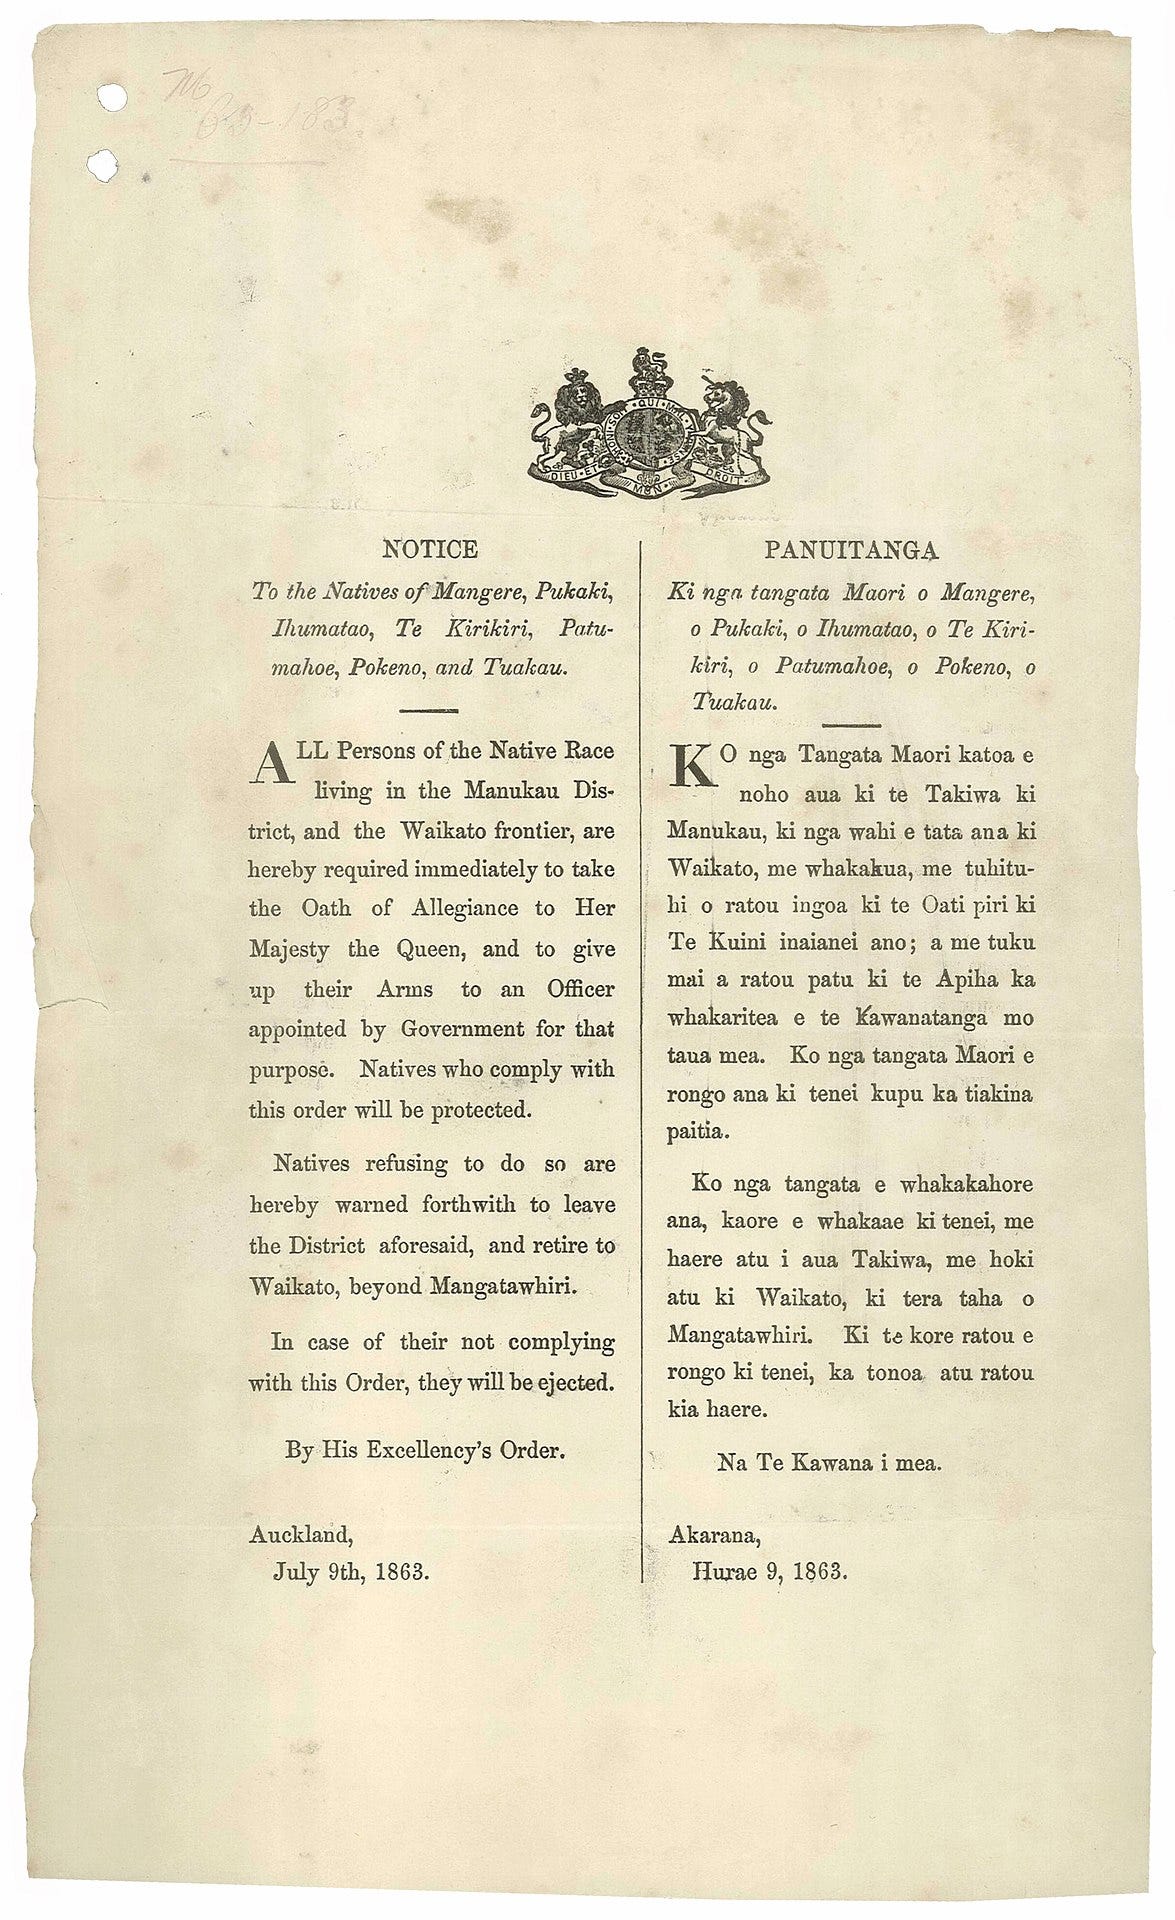 M
63-183.
HONI · SOIT · QUI · MAL · Y · PENSE
DIEU · ET · MON · DROIT
NOTICE
To the Natives of Mangere, Pukaki,
Ihumatao, Te Kirikiri, Patu-
mahoe, Pokeno, and Tuakau.
ALL Persons of the Native Race
living in the Manukau Dis-
trict, and the Waikato frontier, are
hereby required immediately to take
the Oath of Allegiance to Her
Majesty the Queen, and to give
up their Arms to an Officer
appointed by Government for that
purpose. Natives who comply with
this order will be protected.
Natives refusing to do so are
hereby warned forthwith to leave
the District aforesaid, and retire to
Waikato, beyond Mangatawhiri.
In case of their not complying
with this Order, they will be ejected.
By His Excellency's Order.
Auckland,
July 9th, 1863.
PANUITANGA
Ki nga tangata Maori o Mangere,
o Pukaki, o Ihumatao, o Te Kiri-
kiri, o Patumahoe, o Pokeno, o
Tuakau.
KO nga Tangata Maori katoa e
noho aua ki te Takiwa ki
Manukau, ki nga wahi e tata ana ki
Waikato, me whakakua, me tuhitu-
hi o ratou ingoa ki te Oati piri ki
Te Kuini inaianei ano; a me tuku
mai a ratou patu ki te Apiha ka
whakaritea e te Kawanatanga mo
taua mea. Ko nga tangata Maori e
rongo ana ki tenei kupu ka tiakina
paitia.
Ko nga tangata e whakakahore
ana, kaore e whakaae ki tenei, me
haere atu i aua Takiwa, me hoki
atu ki Waikato, ki tera taha o
Mangatawhiri. Ki te kore ratou e
rongo ki tenei, ka tonoa atu ratou
kia haere.
Na Te Kawana i mea.
Akarana,
Hurae 9, 1863.